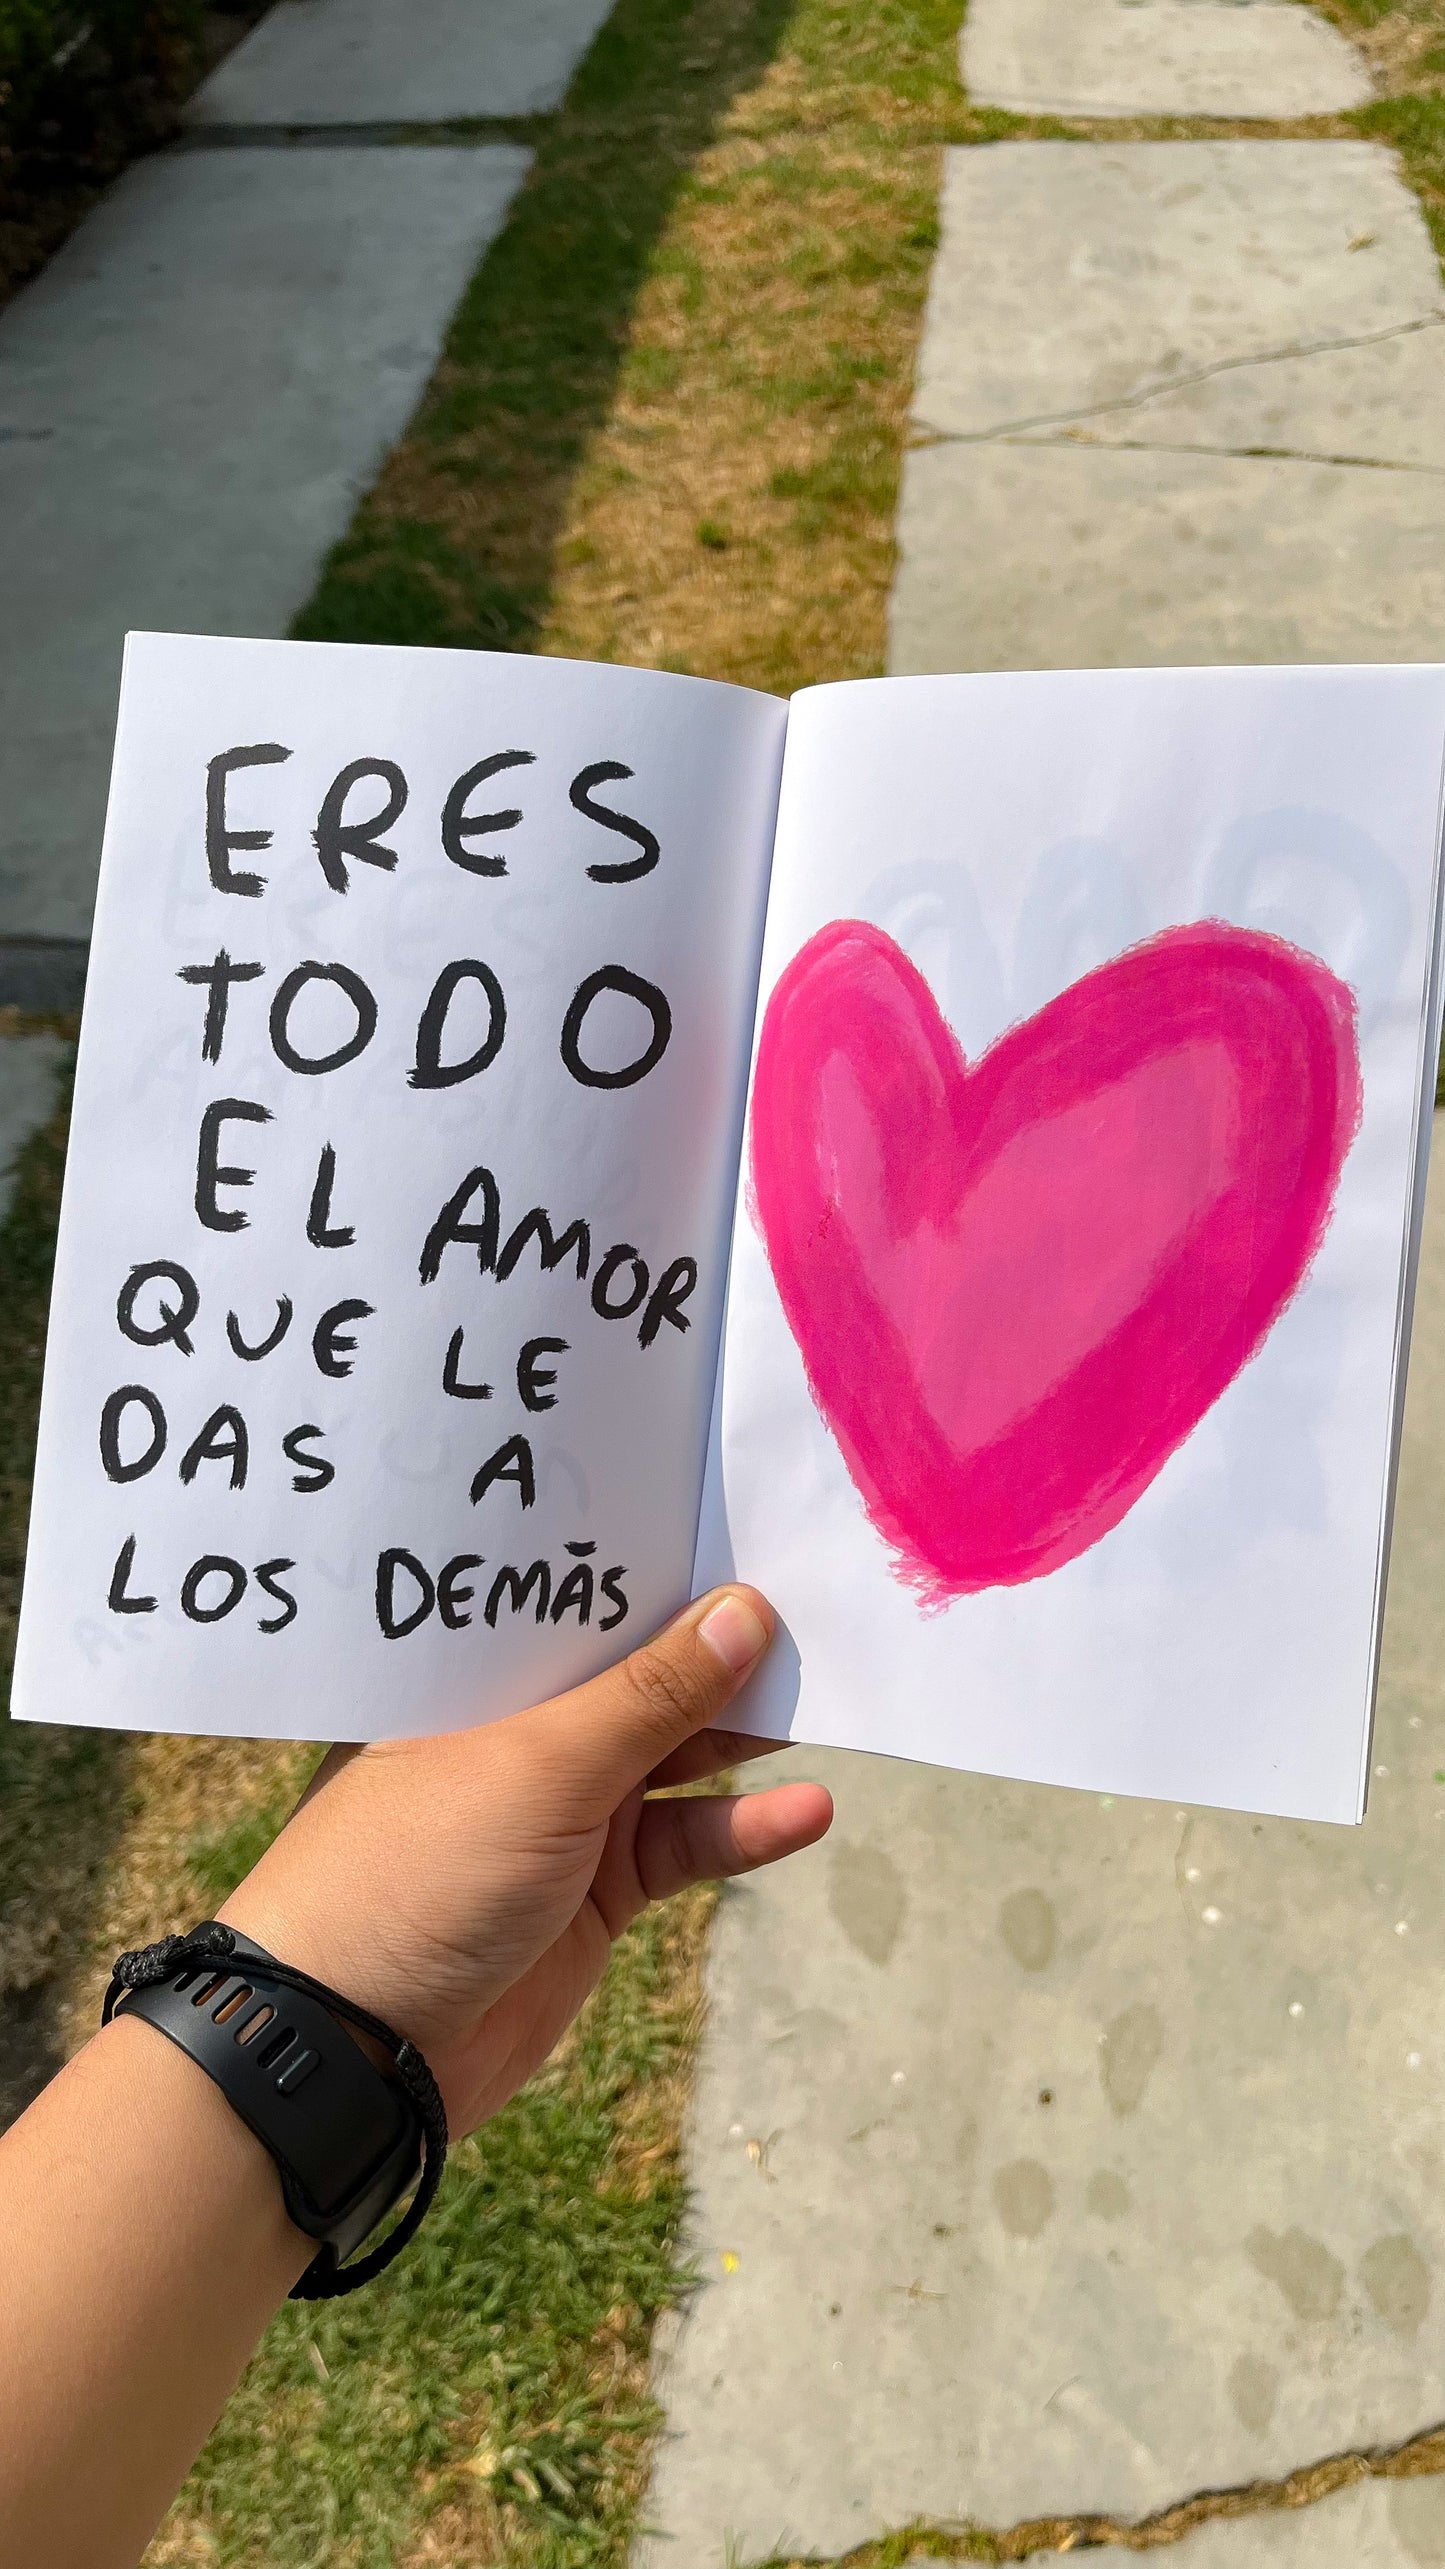 ERES
TODO
EL AMOR
QUE LE
DAS A
LOS DEMÁS